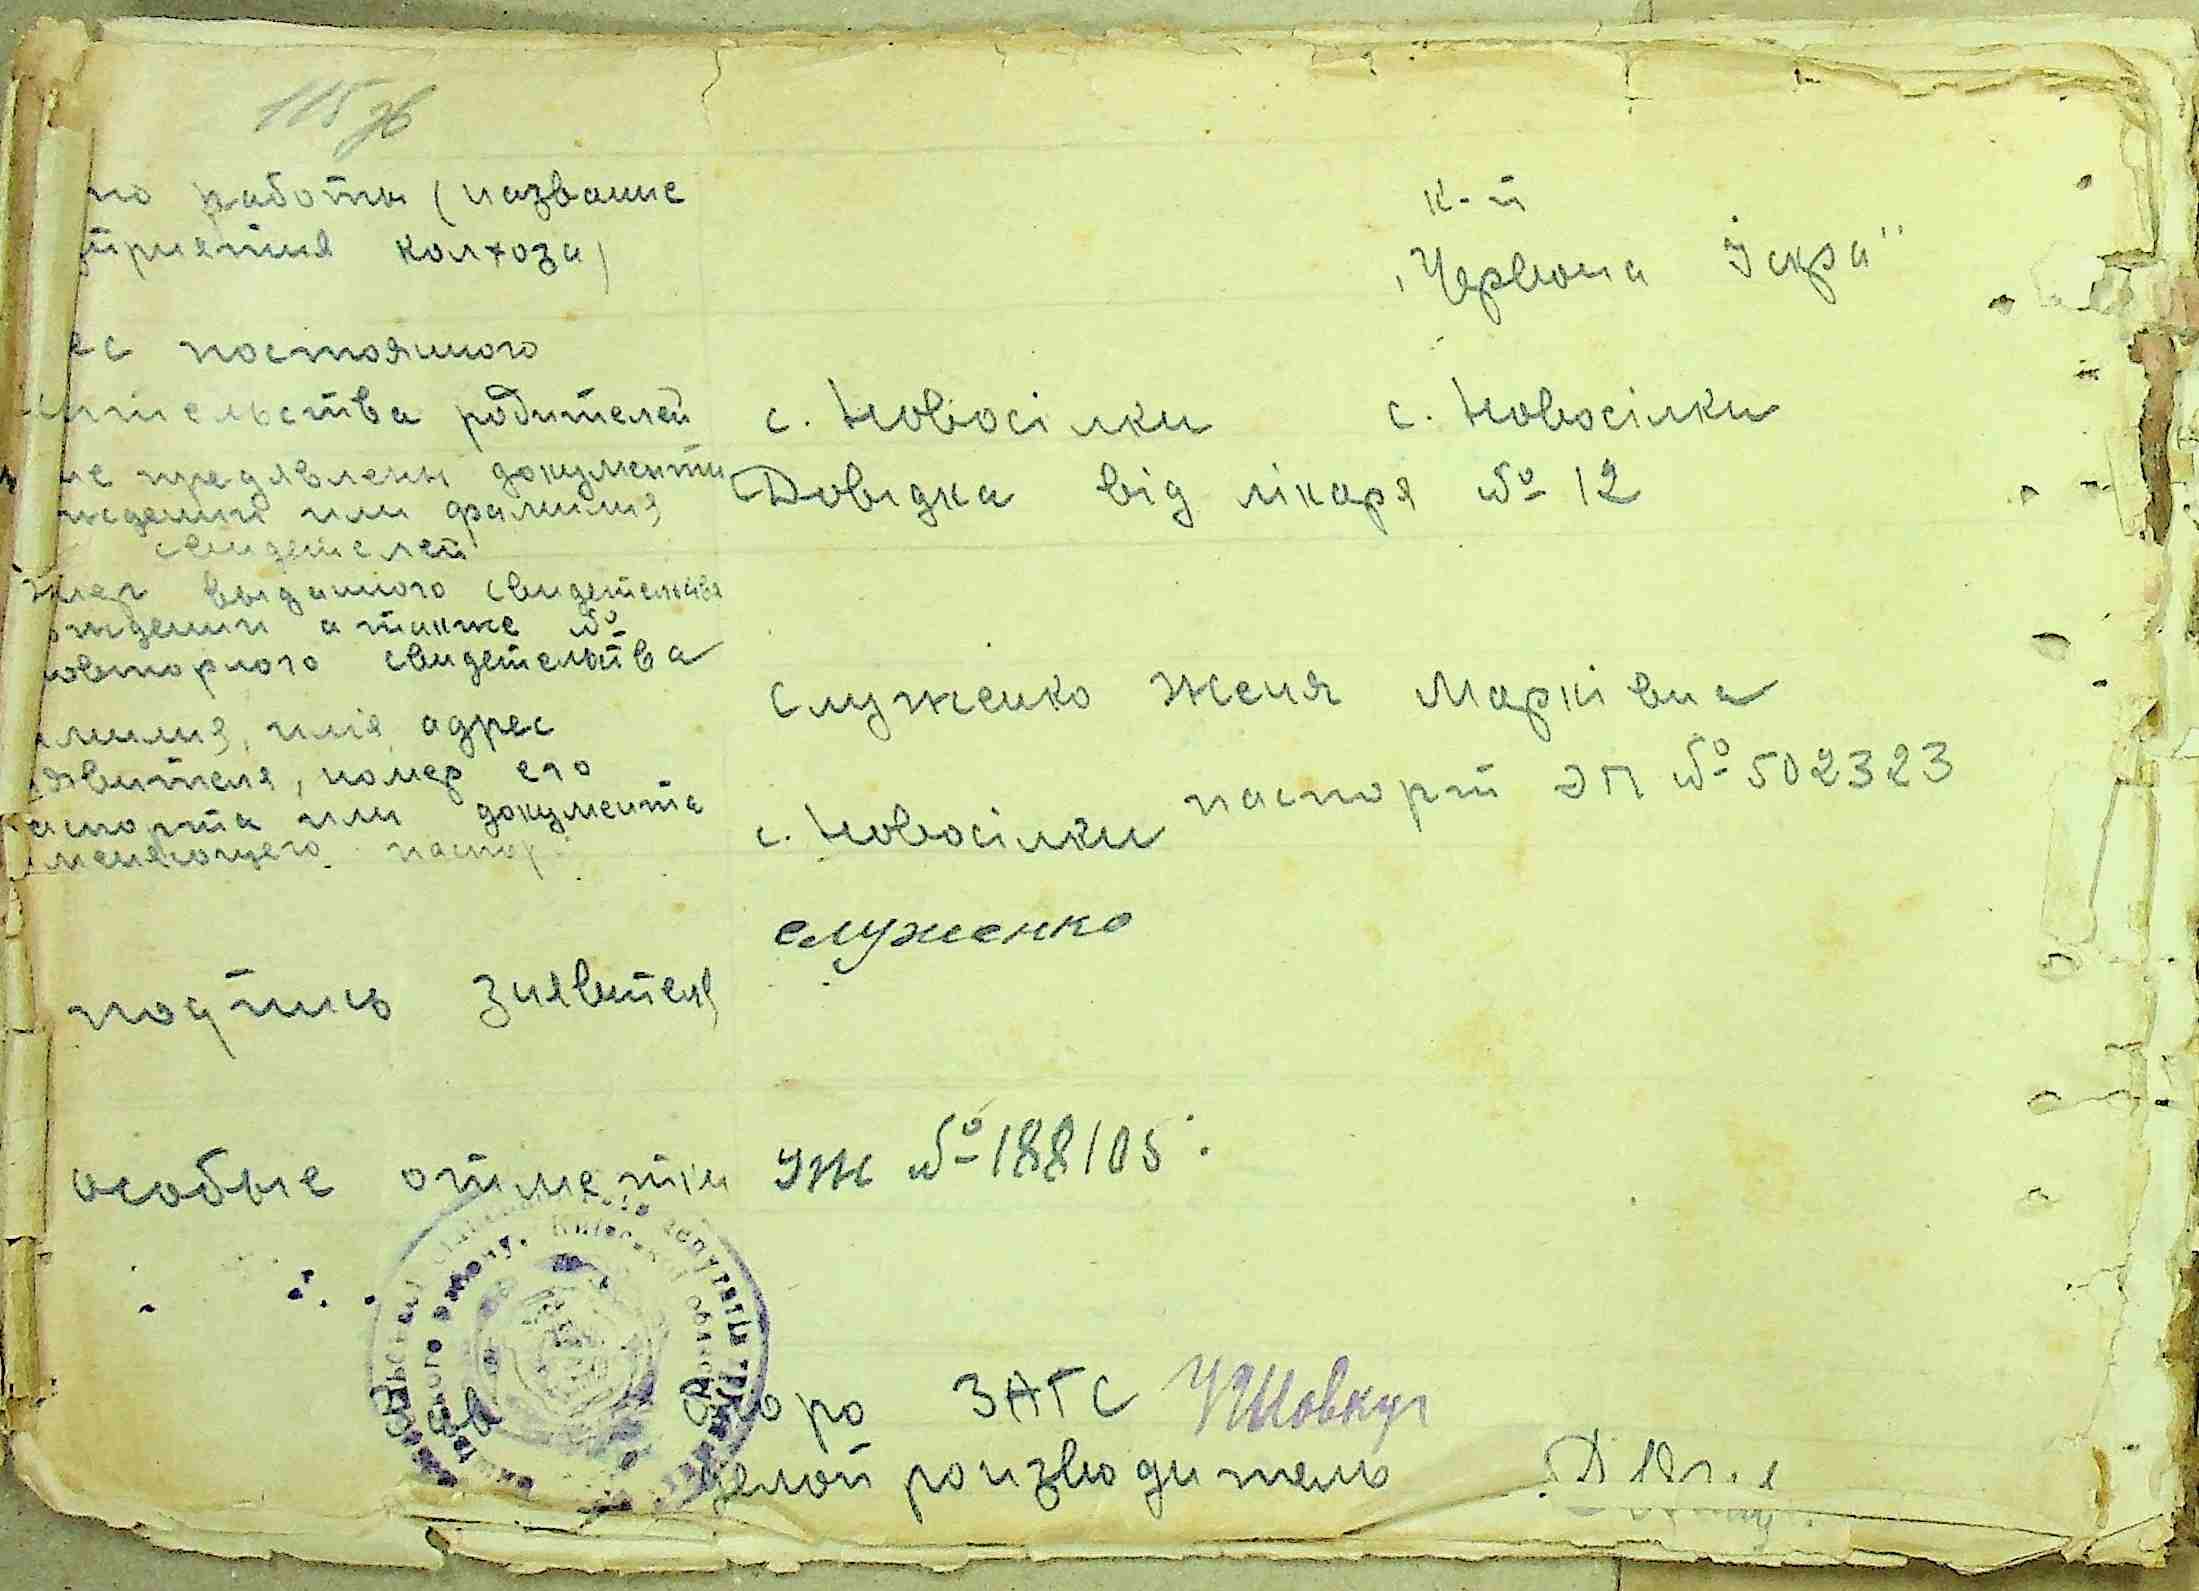 115зв
но работы (название
приятия колхоза)
к-п
"Червона Іскра"
ес постоянного
ительства родителей
с. Новосілки с. Новосілки
ие предявлены документи
ждении или фамилия
свидетелей
Довідка від лікаря № 12
мер выданого свидетельства
ождении а также №
повторного свидетельства
Служенко Женя Марківна
амилия, имя, адрес
явителя, номер его
аспорта или документа
меняющего паспор
с. Новосілки паспорт ЭП № 502323
служенко
подпись заявителя
особые отметки УЖ № 188105
Зав бюро ЗАГС Шовкун
делопроизводитель